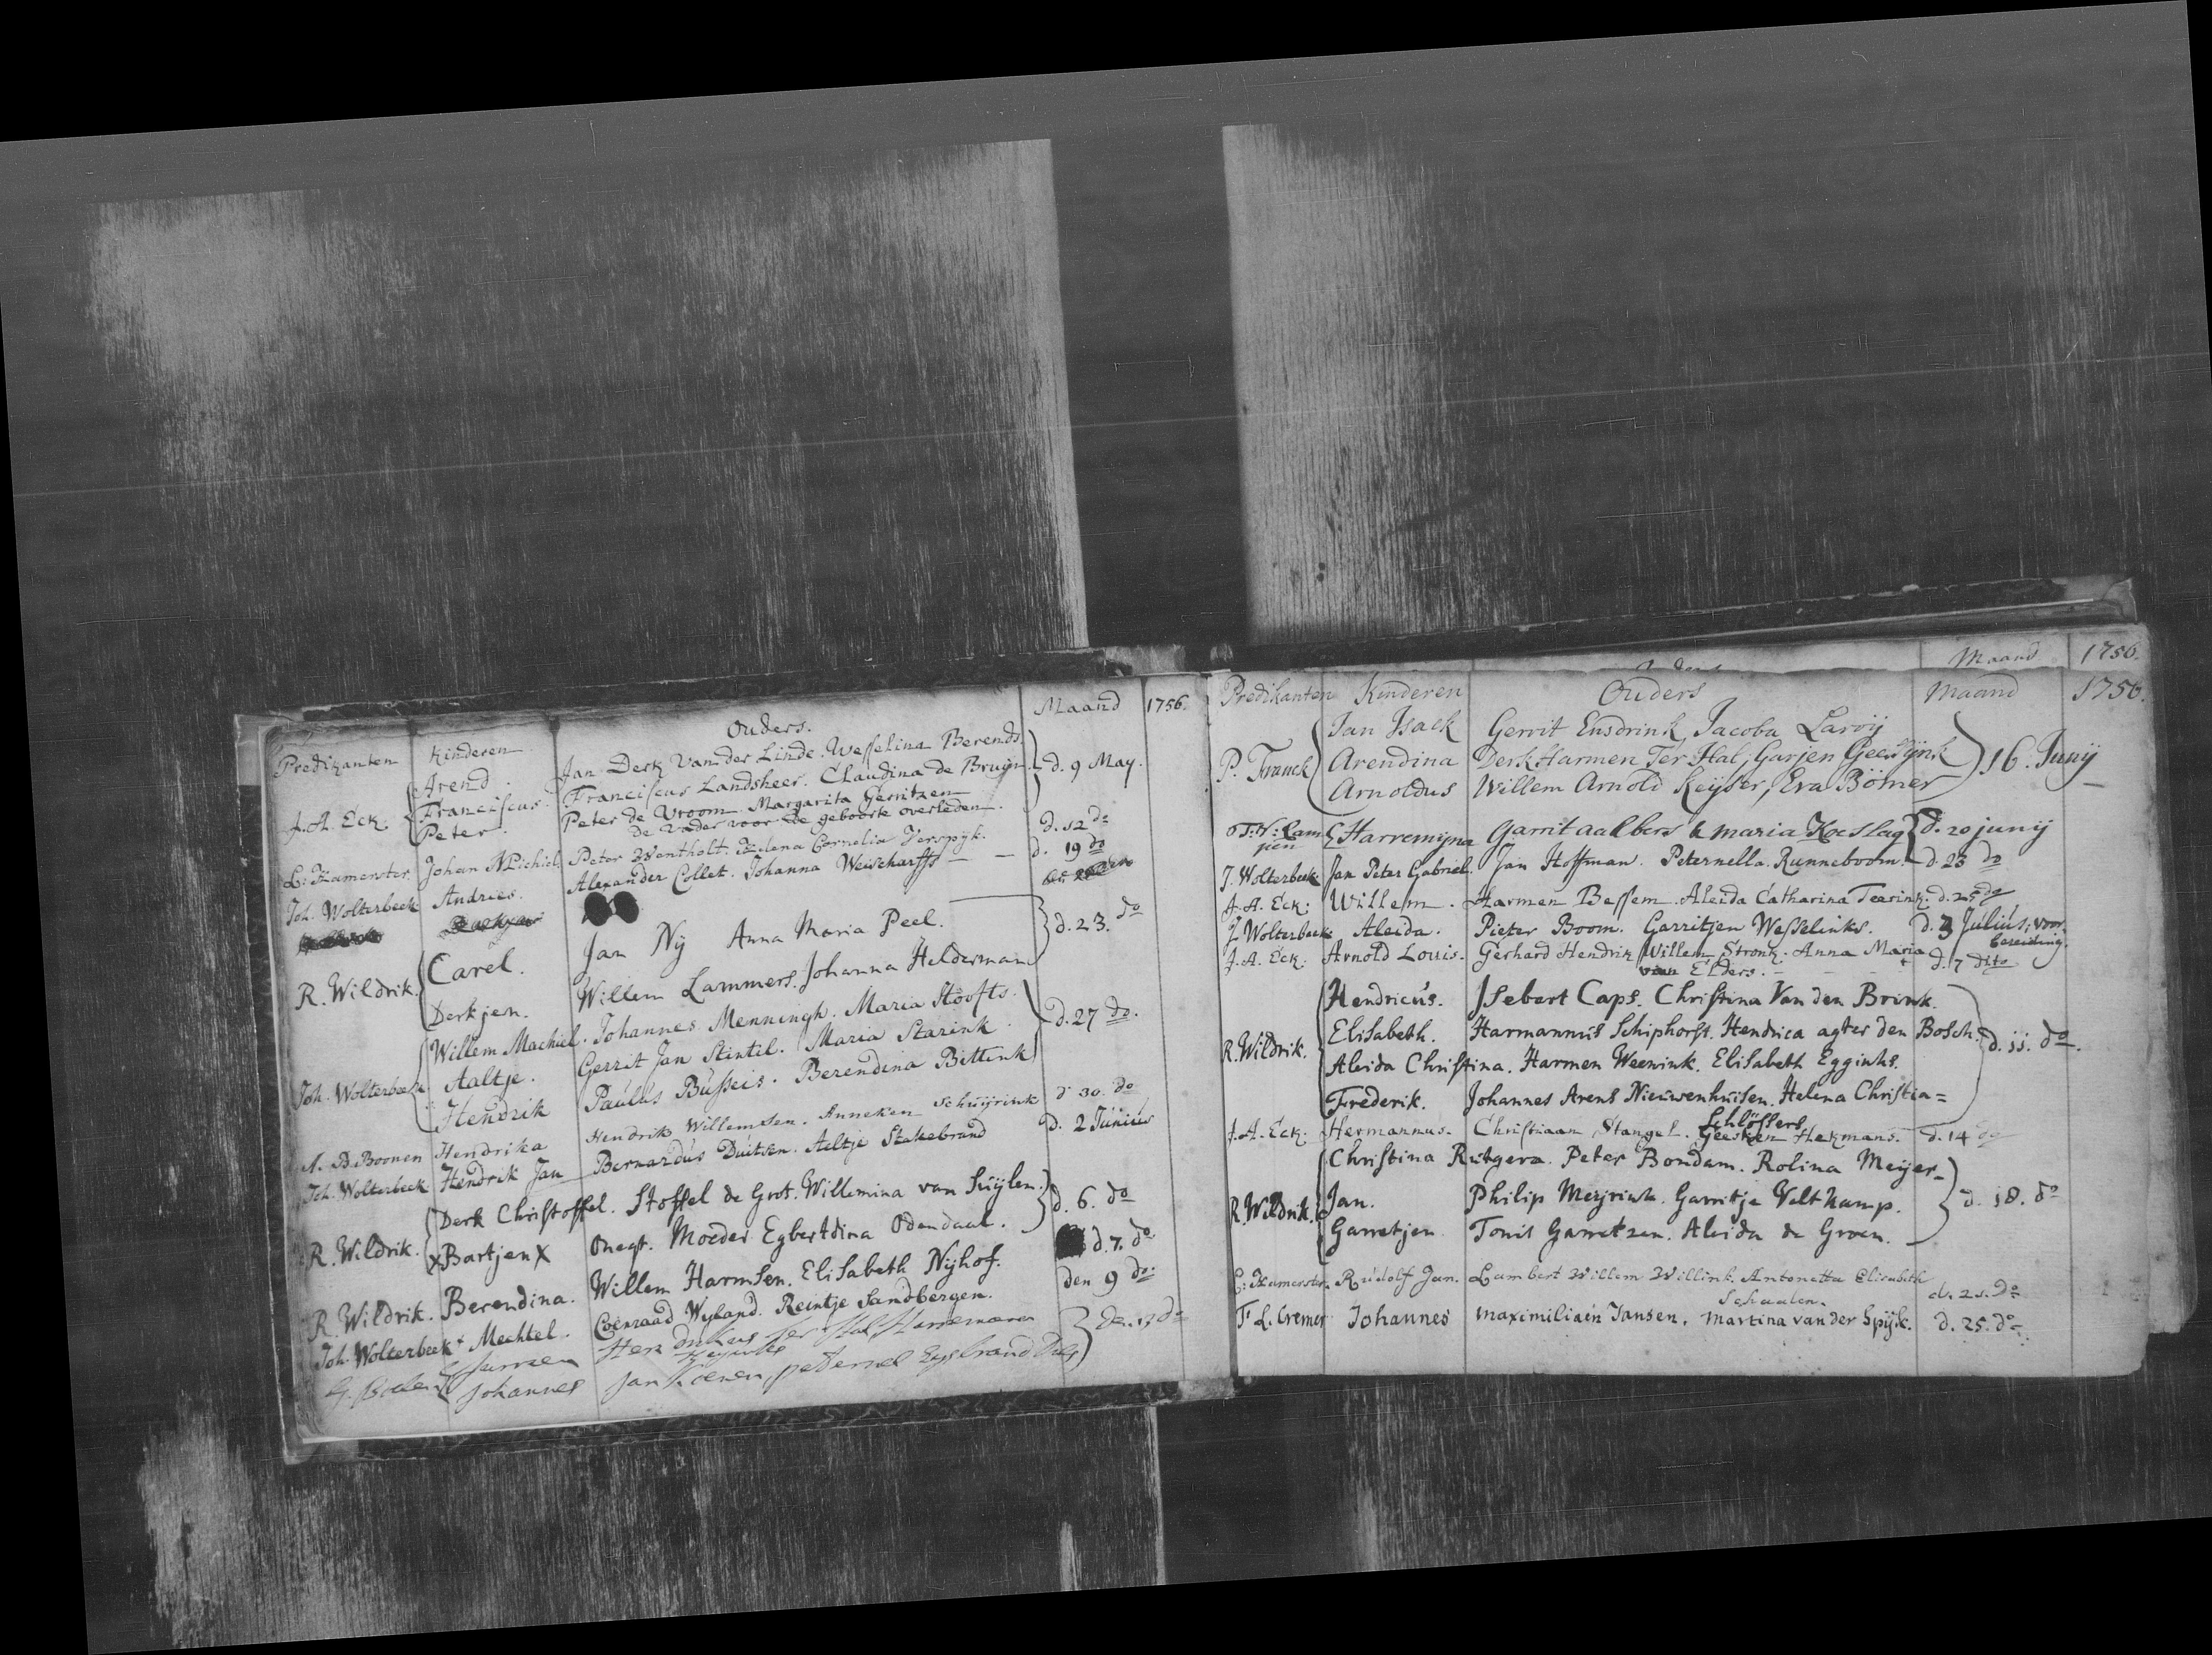 Predikanten Kinderen Ouders. Maand 1756.
Arend. Jan Derk van der Linde. Wesselina Berends
J. A. Eck. Franciscus Franciscus Landsheer. Claudina de Bruijn. d. 9 May.
Peter. Peter de Vroom. Margarita Gerritzen
de Vader voor de geboorte overleden.
L: Hamerster Johan Michiel Peter Wentholt. Helena Cornelia Verspijk. d. 12 do
Joh. Wolterbeek Andries. Alexander Collet. Johanna Weischarffs d. 19 do
Carel. Jan Nij Anna Maria Peel.
R. Wildrik. d. 23. do
Derkjen. Willem Lammers. Johanna Helderman
Willem Machiel. Johannes Menningh. Maria Stoofts.
Joh. Wolterbeek Aaltje. Gerrit Jan Stintil. Maria Starink. d. 27 do.
Hendrik Paulus Busseis. Berendina Bittink
A. B. Boonen Hendrika Hendrik Willemsen. Anneken Schuijrink d 30. do
Joh. Wolterbeek Hendrik Jan Bernardus Duitsen. Aeltje Stakebrand d. 2 Junius
Derk Christoffel. Stoffel de Grot. Willemina van Suijlen. d. 6. do
R. Wildrik. x Bartjen x Onegt. Moeder Egbertdina Odendaal.
R. Wildrik. Berendina. Willem Harmsen. Elisabeth Nijhof. d. 7. do
Joh. Wolterbeek Mechtel. Coenraad Wijland. Reintje Sandbergen. den 9 do.
Johannes Jan Koenen,
Maand 1756.
Predikanten Kinderen Ouders Maand 1756.
Jan Isack Gerrit Ensdrink, Jacoba Laroij
P. Franck Arendina Derk Harmen Ter Hal, Garjen Geerdijnk 16. Junij
Arnoldus Willem Arnold Keijser, Eva Bömer
Harremijna Garrit aalbers & maria Koeslag d. 20 junij
J. Wolterbeek Jan Peter Gabriel. Jan Hoffman. Peternella Runneboom. d. 23 do
J. A. Eck: Willem. Harmen Bessem. Aleida Catharina Teerink. d. 25 do
J. Wolterbeek Aleida. Pieter Boom. Garritjen Wesselinks. d. 3 Julius, voor
bereiding.
J. A. Eck. Arnold Louis. Gerhard Hendrik Willem Stronk. Anna Maria d. 7 dito
van Elders.
Hendricus. Isebert Caps. Christina Van den Brink.
Elisabeth. Harmannus Schiphorst. Hendrica agter den Bosch.
R. Wildrik. d. 11. do.
Aleida Christina. Harmen Weenink. Elisabeth Egginks.
Frederik. Johannes Arens Nieuwenhuisen. Helena Christia=
Schlössers
J. A. Eck: Hermannus. Christiaan Stangel. Geesken Hekmans. d. 14 do
Christina Rutgera. Peter Bondam. Rolina Meijer
R. Wildrik. Jan. Philip Meijrink. Garritje Veltkamp. d. 18. do
Garretjen Tonis Garretzen. Aleida de Groen.
L: Hamerster. Rudolf Jan. Lambert Willem Willink. Antonetta Elisabeth
Schaalen. d. 21. Do
F. L. Cremer Johannes Maximiliaen Jansen. Martina van der Spijck. d. 25. do